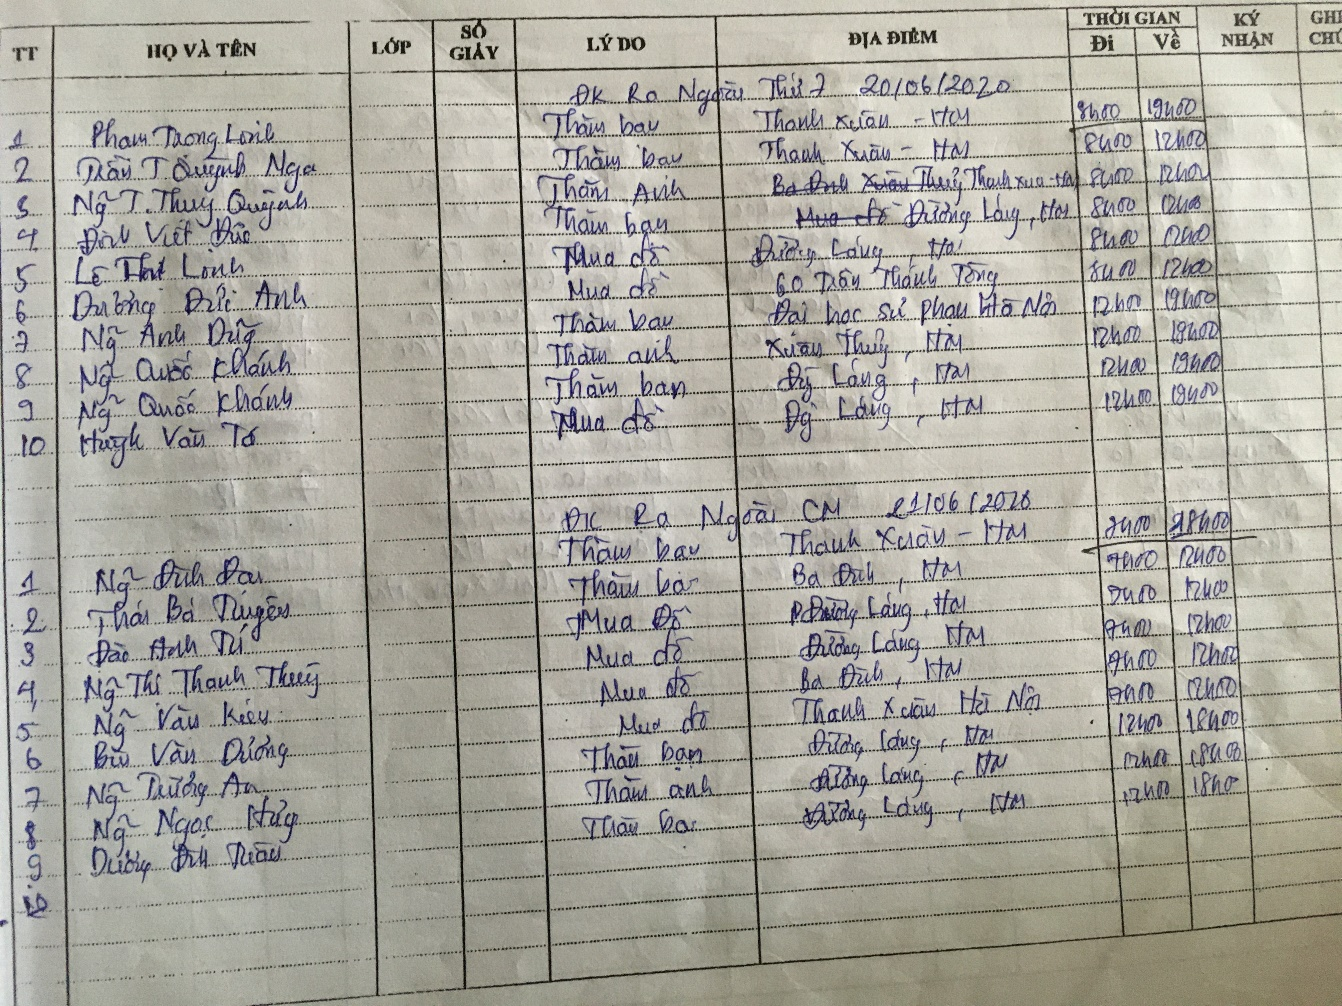 TT HỌ VÀ TÊN LỚP SỐ GIẤY LÝ DO ĐỊA ĐIỂM THỜI GIAN Đi Về KÝ NHẬN GHI CHÚ
ĐK Ra Ngoài Thứ 7 20/06/2020
1 Phạm Trọng Linh Thăm bạn Thanh Xuân - HN 8h00 19h00
2 Trần T Quỳnh Nga Thăm bạn Thanh Xuân - HN 8h00 12h00
3 Ng~ T. Thuý Quỳnh Thăm Anh Ba Đình Xuân Thuỷ Thanh xuâ-HN 8h00 12h00
4 Đinh Viết Đức Thăm bạn Mua đồ Đường Láng, HN 8h00 12h00
5 Lê Linh Mua đồ Đường Láng, HN 8h00 12h00
6 Dương Đức Anh Mua đồ 60 Trần Thánh Tông 8h00 12h00
7 Ng~ Anh Dũng Thăm bạn Đại học sư phạm Hà Nội 12h00 19h00
8 Ng~ Quốc Khánh Thăm anh Xuân Thuỷ, HN 12h00 19h00
9 Ng~ Quốc Khánh Thăm bạn Đg Láng, HN 12h00 19h00
10 Huỳnh Văn Tố Mua đồ Đg Láng, HN 12h00 19h00
ĐK Ra Ngoài CN 21/06/2020
1 Ng~ Đình Đại Thăm bạn Thanh Xuân - HN 7h00 18h00
2 Thái Bá Tuyên Thăm bạ Ba Đình, HN 7h00 12h00
3 Đào Anh Tú Mua Đồ Đường Láng, HN 7h00 12h00
4 Ng~ Thị Thanh Thuý Mua đồ Đường Láng HN 7h00 12h00
5 Ng~ Văn Mua đồ Ba Đình, HN 7h00 12h00
6 Bùi Văn Dương Mua đồ Thanh Xuân Hà Nội 7h00 12h00
7 Ng~ Trường An Thăm bạn Đường Láng, HN 12h00 18h00
8 Ng~ Ngọc Hưng Thăm anh Đường Láng, HN 12h00 18h00
9 Dương Đình Tuân Thăm bạ Đường Láng, HN 12h00 18h00
10